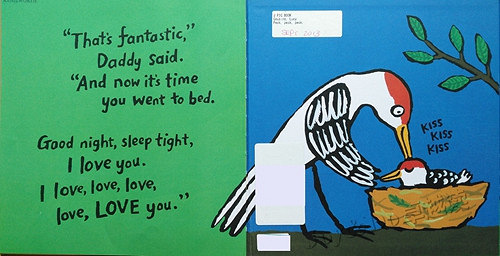 “That's fantastic,”
Daddy said.
“And now it's time
you went to bed.
Good night, sleep tight,
I love you.
I love, love, love,
love, LOVE you.”
SEPT 2013
KISS
KISS
KISS